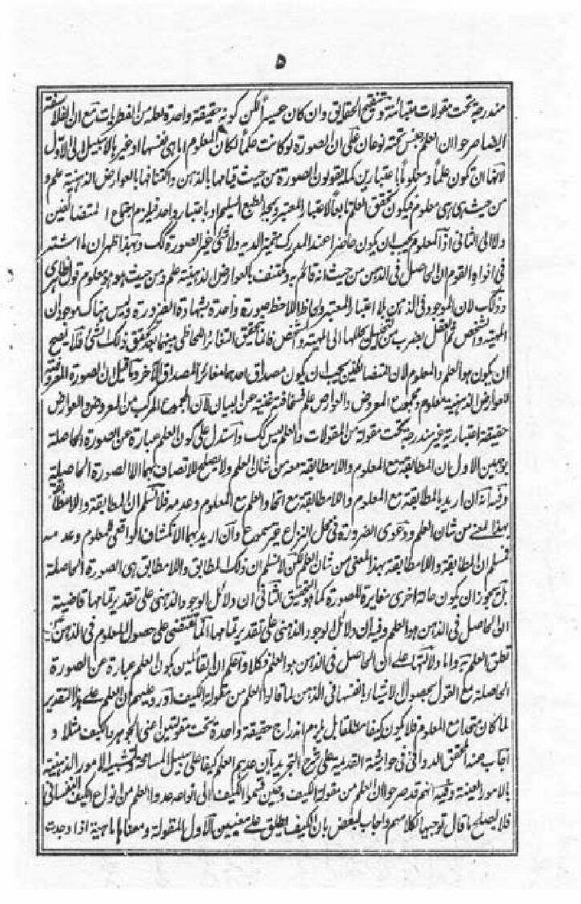 ٥
مندرجة تحت مقولات متبائنة وتنقيح الحقائق وان كان عسيرا لكن كونه حقيقة واحدة لعله من الفطريات مع ان الفلاسفة
ايضا صرحوا ان العلم جنس تحته نوعان على ان الصورة لو كانت علما لكان المعلوم اما هى نفسها او غيره لا سبيل الى الاول
لانها ان تكون علما ومعلوما باعتبارين كما يقولون الصورة من حيث قيامها بالذهن واكتنافها بالعوارض الذهنية علم و
من حيث هى هى معلوم فيكون تحقق العلم تابعا لاعتبار المعتبر وبحيد الطبع السليم او باعتبار واحد فيلزم اجتماع المتضائفين
ولا الى الثانى اذ المعلوم يجب ان يكون حاضرا عند المدرك متميزا لديه ولا شئ غير الصورة كذلك وبهذا ظهر ان ما اشتهر
فى افواه القوم ان الحاصل فى الذهن من حيث انه قائم به ومكتنف بالعوارض الذهنية علم ومن حيث هو هو معلوم قول ظاهرى
وذلك لان الموجود فى الذهن بلا اعتبار المعتبر ولحاظ اللاحظ صورة واحدة بشهادة الضرورة وليس هناك موجودان
المهية والشخص ثم العقل بضرب من التحليل يحللها الى المهية والشخص فانما تحقق التغائر اللحاظى بينهما بعد تحقق ذلك الشئ فلا يصح
ان يكون هو العلم والمعلوم لان المتضائفين يجب ان يكون مصداق احدهما مغائرا لمصداق الآخر وما قيل ان الصورة المعروضة
للعوارض الذهنية معلوم ومجموع المعروض والعوارض علم فسخافته غنية عن البيان لان المجموع المركب من المعروض والعوارض
حقيقة اعتبارية غير مندرجة تحت مقولة من المقولات والعلم ليس كذلك واستدل على كون العلم عبارة عن الصورة الحاصلة
بوجهين الاول ان المطابقة مع المعلوم واللامطابقة معه من شان العلم ولا يصلح للاتصاف بهما الا الصورة الحاصلة
وفيه انه ان اريد بالمطابقة مع المعلوم واللامطابقة مع اتحاد العلم مع المعلوم وعدمه فلا نسلم ان المطابقة واللامطابقة
بهذا المعنى من شان العلم ودعوى الضرورة فى محل النزاع غير مسموع وان اريد بهما الانكشاف الواقعى للمعلوم وعدمه
فنسلم ان المطابقة واللامطابقة بهذا المعنى من شان العلم لكن لا نسلم ان ذلك المطابق واللامطابق هى الصورة الحاصلة
بل يجوز ان يكون حالة اخرى مغايرة للصورة كما هو التحقيق الثانى ان دلائل الوجود الذهنى على تقدير تمامها قاضية
ان الحاصل فى الذهن هو العلم وفيه ان دلائل الوجود الذهنى على تقدير تمامها انما تقتضى على حصول المعلوم فى الذهن عند
تعلق العلم به واما دلالتها على ان الحاصل فى الذهن هو العلم فكلا واعلم ان القائلين بكون العلم عبارة عن الصورة
الحاصلة مع القول بحصول الاشياء بانفسها فى الذهن لما قالوا العلم من مقولة الكيف اورد عليهم ان العلم على هذا التقدير
لما كان متحدا مع المعلوم فلا يكون كيفا مطلقا بل يلزم اندراج حقيقة واحدة تحت مقولتين اعنى الجوهر والكيف مثلا و
اجاب عنه المحقق الدوانى فى حواشيه القديمة على شرح التجريد بان عدهم العلم كيفا على سبيل المسامحة وتشبيه الامور الذهنية
بالامور العينية وفيه انهم قد صرحوا ان العلم من مقولة الكيف وحين قسموا الكيف الى انواعه عدوا العلم من انواع الكيف النفسانى
فلا يصلح ما قال توجيها لكلامهم واجاب البعض بان الكيف يطلق على معنيين الاول المقولة ومعناها ماهية اذا وجدت